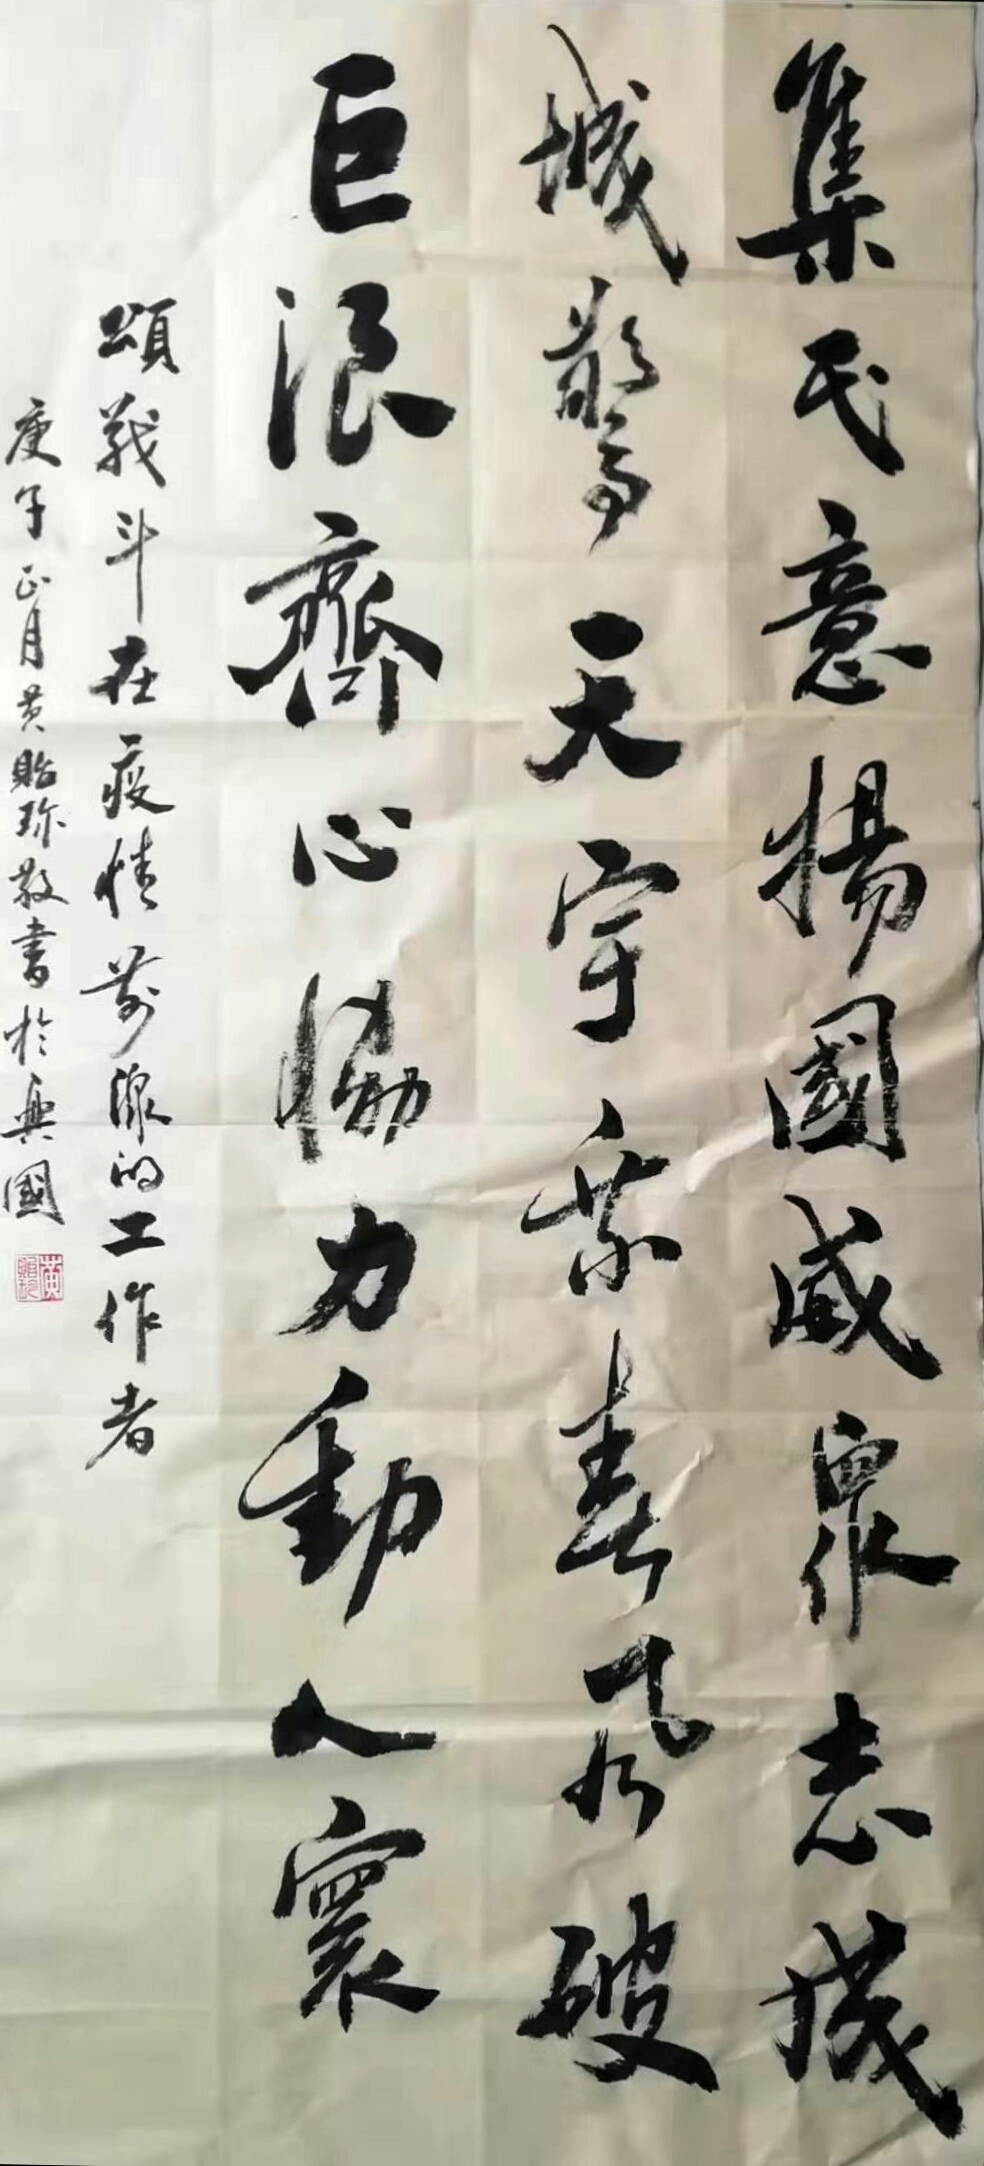 集民意揚國威眾志成
城驚天宇乘春風破
巨浪齊心協力動人寰
頌戰斗在疫情前線的工作者
庚子正月黄貽珍敬書於興國
黄貽珍